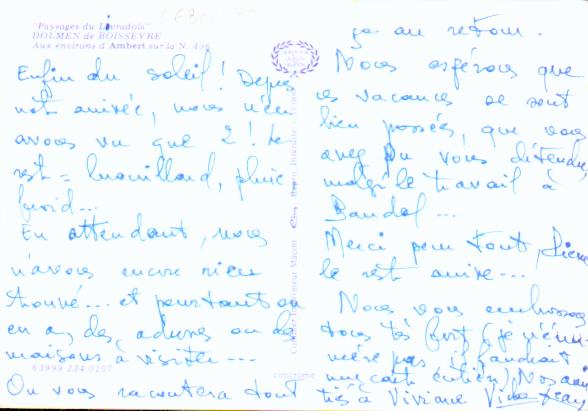 "Paysages du Livradois"
DOLMEN de BOISSEYRE
Aux environs d'Ambert sur la N. 496
Enfin du soleil! Depuis
not arrivée, nous n'en
avons vu que 2! Le
rest = brouillard, pluie
froid...
En attendant, nous
n'avons encore rien
trouvé... et pourtant on
en a, des adresses ou des
maisons à visiter...
63999 234 0107
On vous racontera tout
ça au retour.
Nous espérons que
ces vacances se sont
bien passées, que vous
avez pu vous détendre,
malgré le travail à
Bandol...
Merci pour tout,
le rest suive...
Nous vous embrassons
tous très fort (je n'énu-
mère pas, il faudrait
une carte entière) Nos ami-
tiés à Viviane